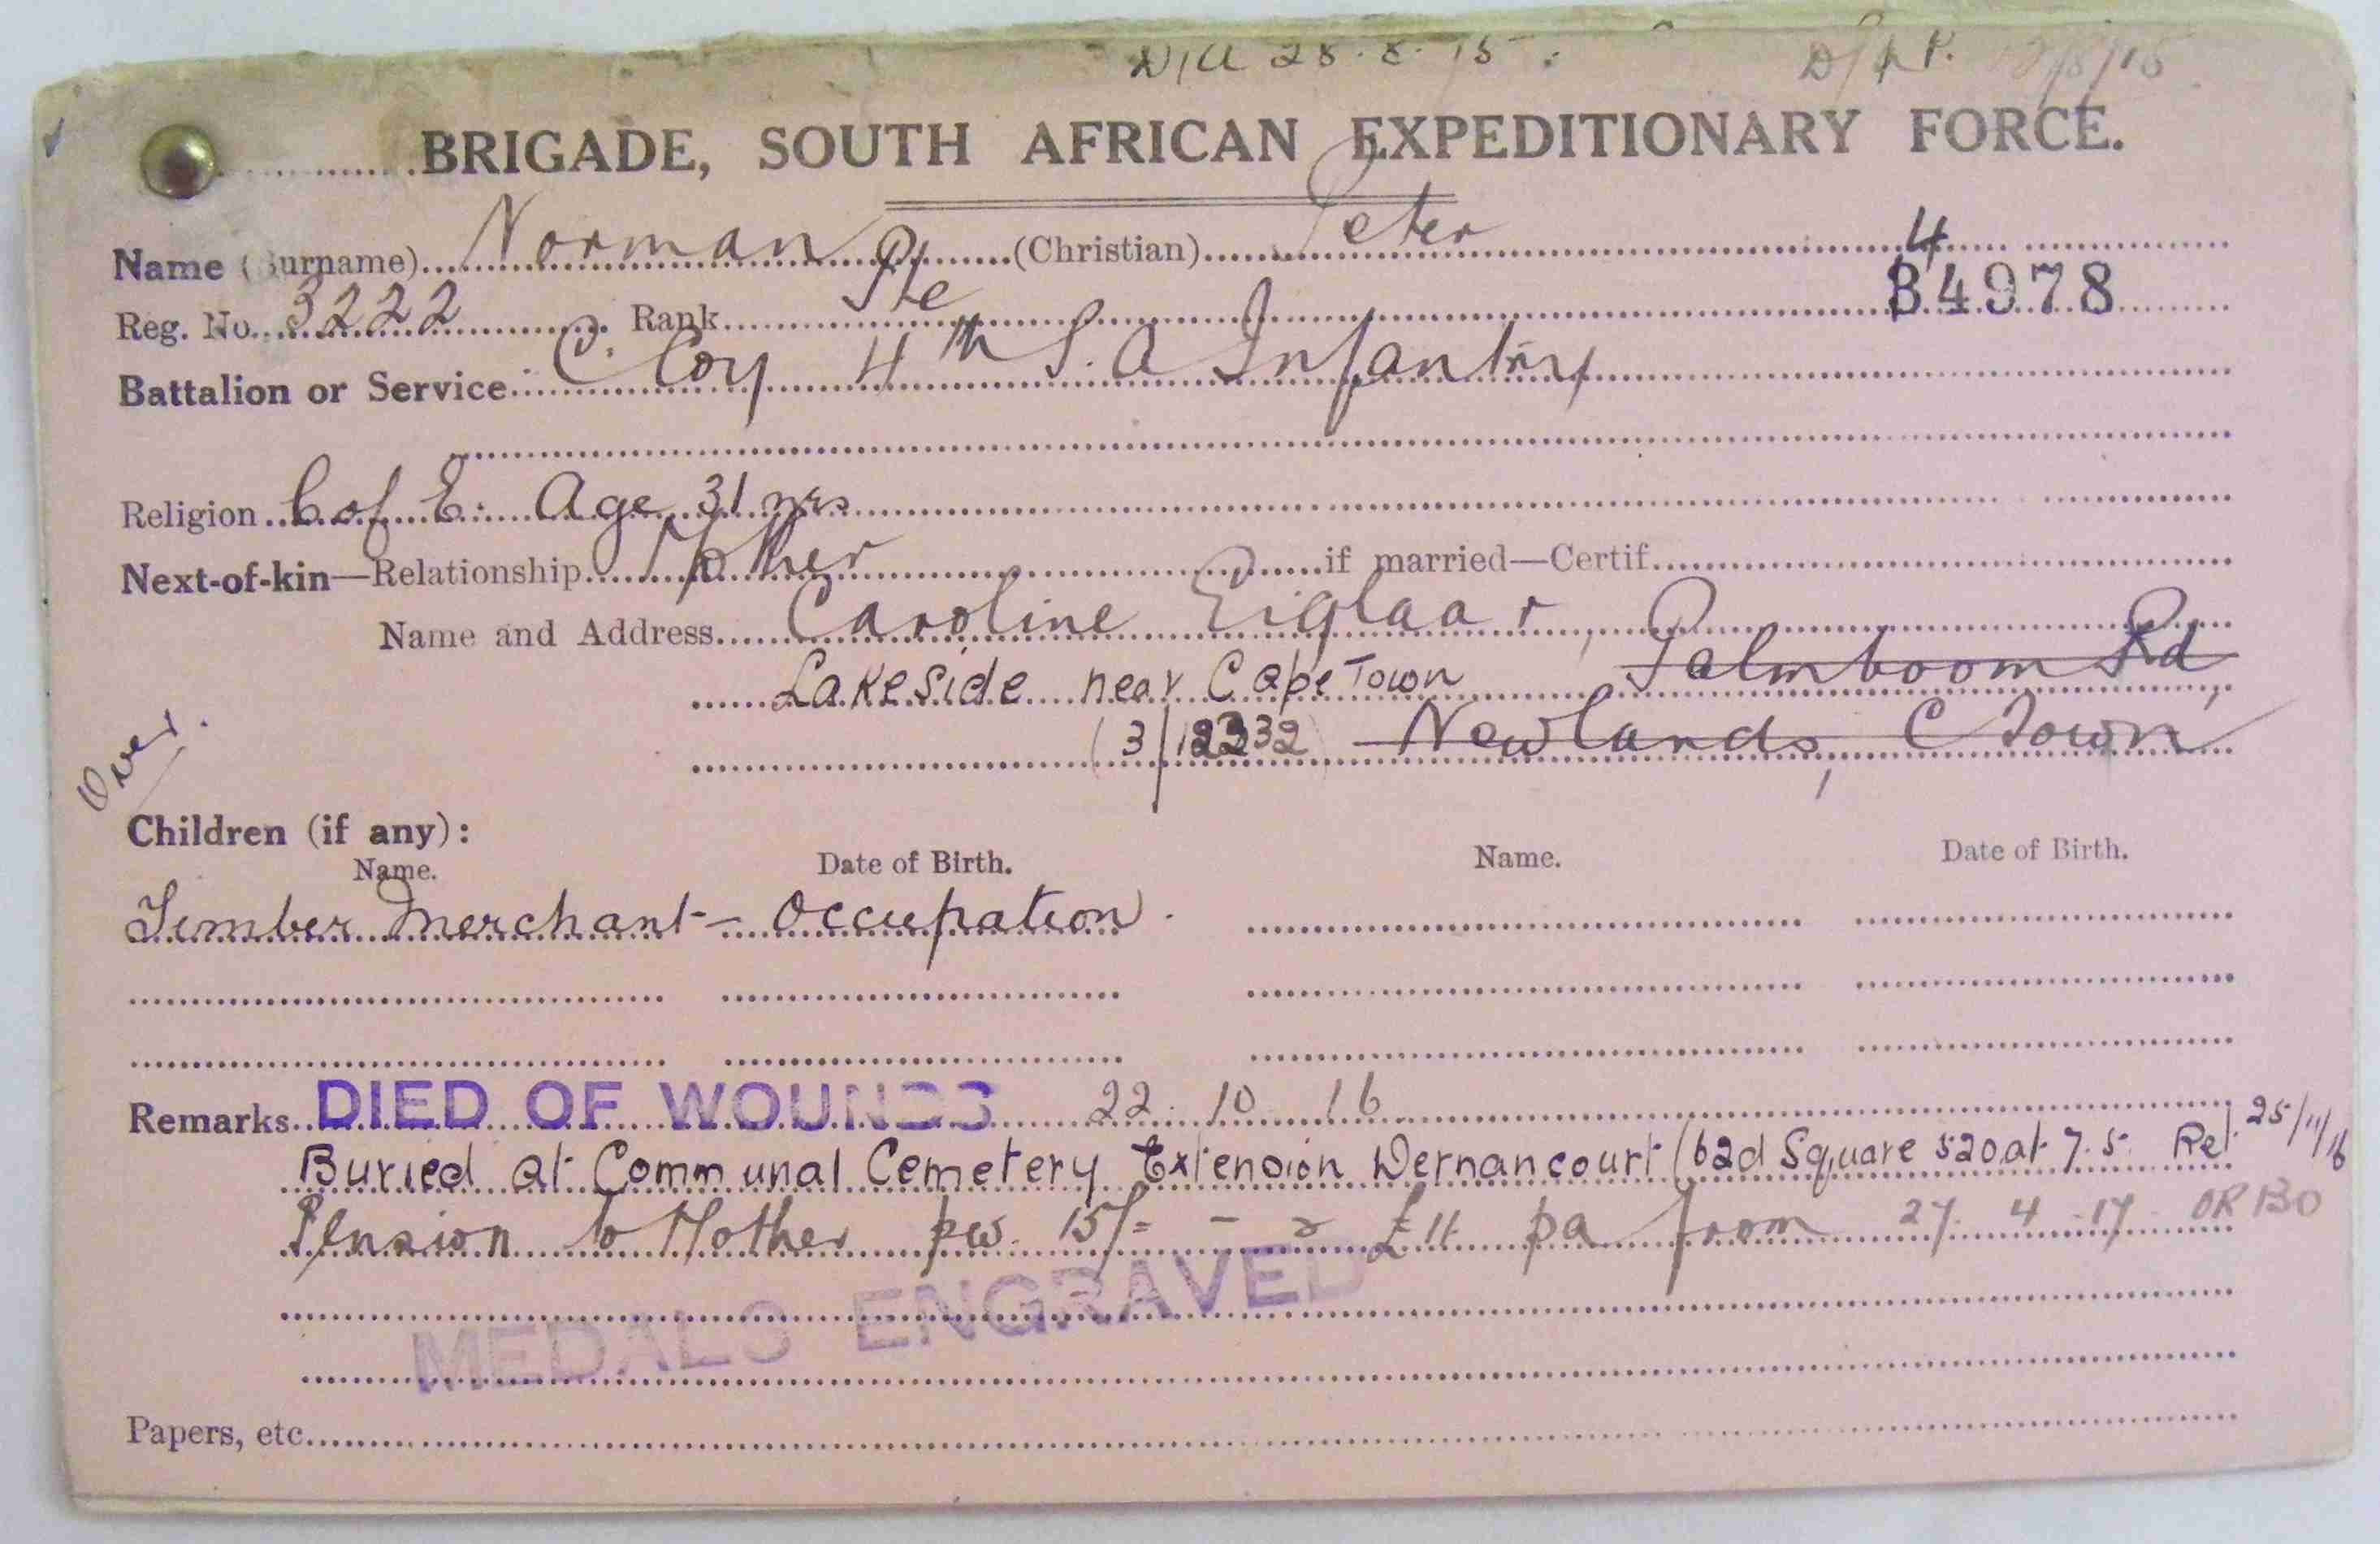 D/A 28.8.15.
BRIGADE, SOUTH AFRICAN EXPEDITIONARY FORCE.
Name (Surname) Norman (Christian) Peter 4
Reg. No. 3222 Rank Pte B4978
Battalion or Service C. Coy 4th S.A Infantry
Religion C of E. Age 31 yrs
Next-of-kin—Relationship Mother if married—Certif.
Name and Address Caroline Eiglaar,
Lakeside near Cape Town Palmboom Rd,
Newlands, C Town
Over.
Children (if any):
Name. Date of Birth. Name. Date of Birth.
Timber Merchant - Occupation.
Remarks DIED OF WOUNDS 22.10.16
Buried at Communal Cemetery Extension Dernancourt (62d Square 520.at 7.5. Rel. 25/11/16
Pension to Mother pw. 15/= - £11 pa from 27.4.17 OR130
MEDALS ENGRAVED
Papers, etc.